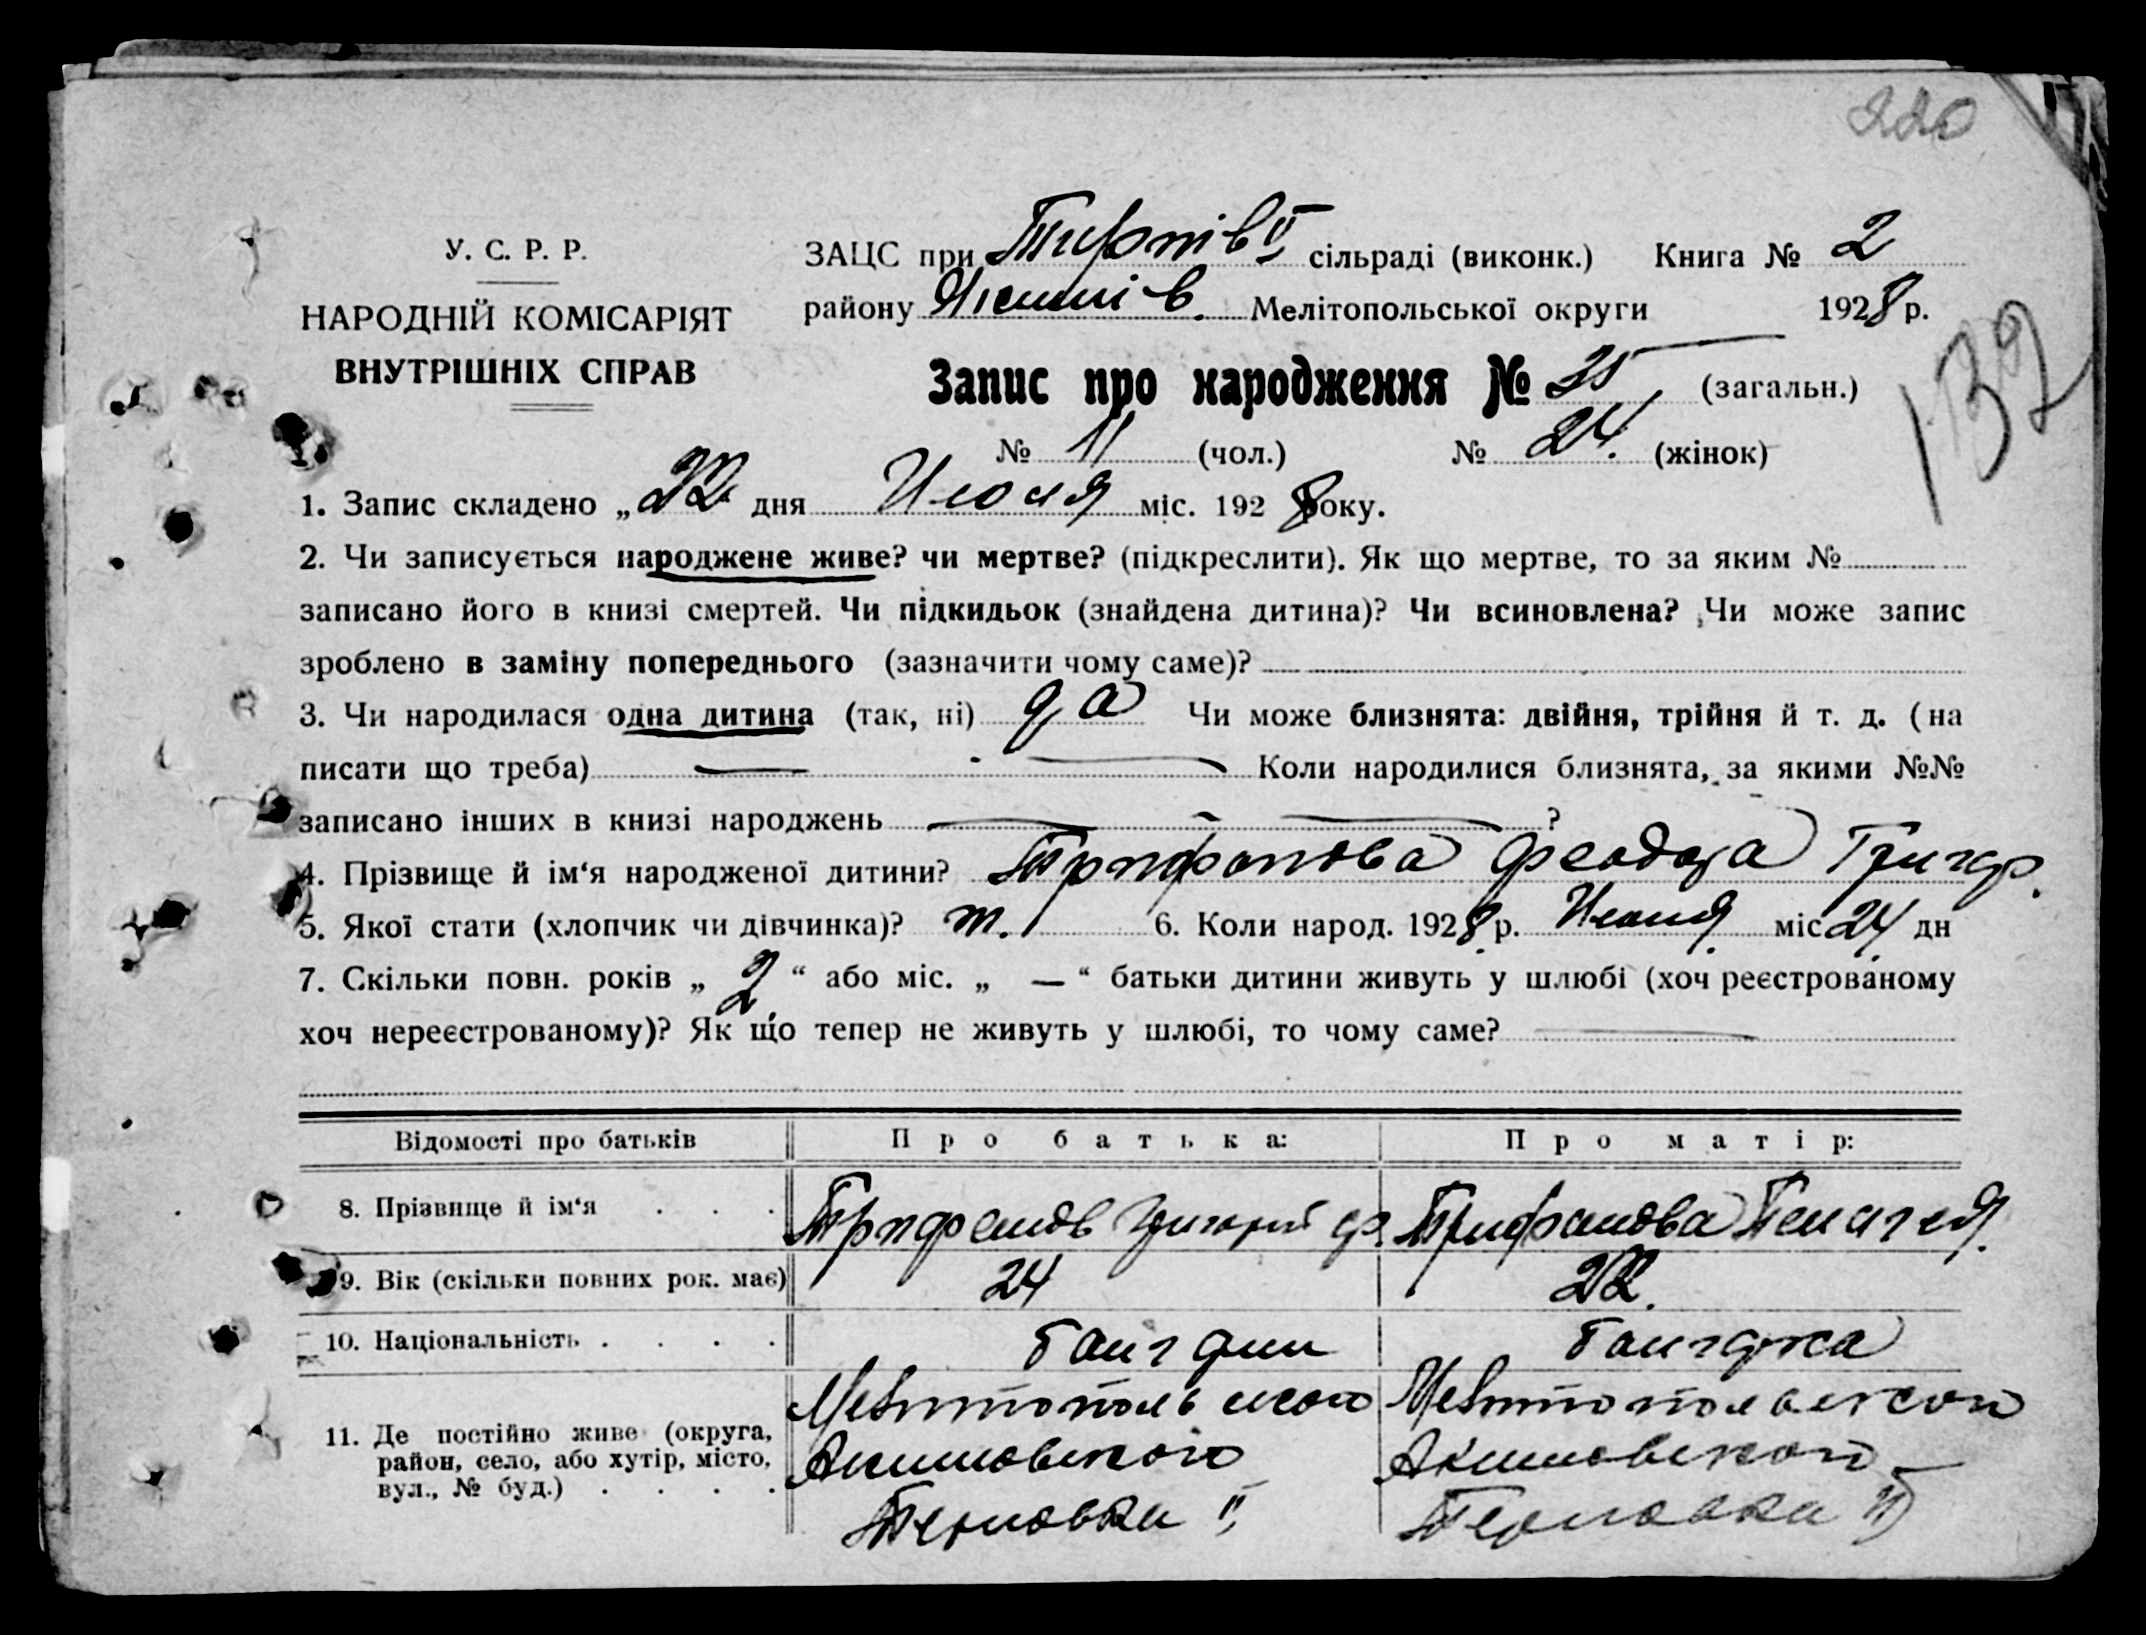 220
У. С. Р. Р.
НАРОДНІЙ КОМІСАРІЯТ
ВНУТРІШНІХ СПРАВ
ЗАЦС при сільраді (виконк.) Книга № 2
району Мелітопольської округи 1928 р.
132
Запис про народження № 35 (загальн.)
№ 11 (чол.) № 24. (жінок)
1. Запис складено „22 дня Июля міс. 1928 року.
2. Чи записується народжене живе? чи мертве? (підкреслити). Як що мертве, то за яким №
записано його в книзі смертей. Чи підкидьок (знайдена дитина)? Чи всиновлена? Чи може запис
зроблено в заміну попереднього (зазначити чому саме)?
3. Чи народилася одна дитина (так, ні) да Чи може близнята: двійня, трійня й т. д. (на
писати що треба) — Коли народилися близнята, за якими №№
записано інших в книзі народжень ?
4. Прізвище й ім‘я народженої дитини? Трифонова Григор.
5. Якої стати (хлопчик чи дівчинка)? ж. 6. Коли народ. 1928 р. міс 24 дн
7. Скільки повн. років „ 2 “ або міс. „ — “ батьки дитини живуть у шлюбі (хоч реєстрованому
хоч нереєстрованому)? Як що тепер не живуть у шлюбі, то чому саме?
Відомості про батьків Про батька: Про матір:
8. Прізвище й ім‘я . . . Трифонов Григорий Трифонова Пелагея.
9. Вік (скільки повних рок. має) 24 22.
10. Національність . . . . болгарин болгарка
11. Де постійно живе (округа, район, село, або хутір, місто, вул., № буд.) . . . . Мелитопольского Мелитопольского
Акимовского Акимовского
II II